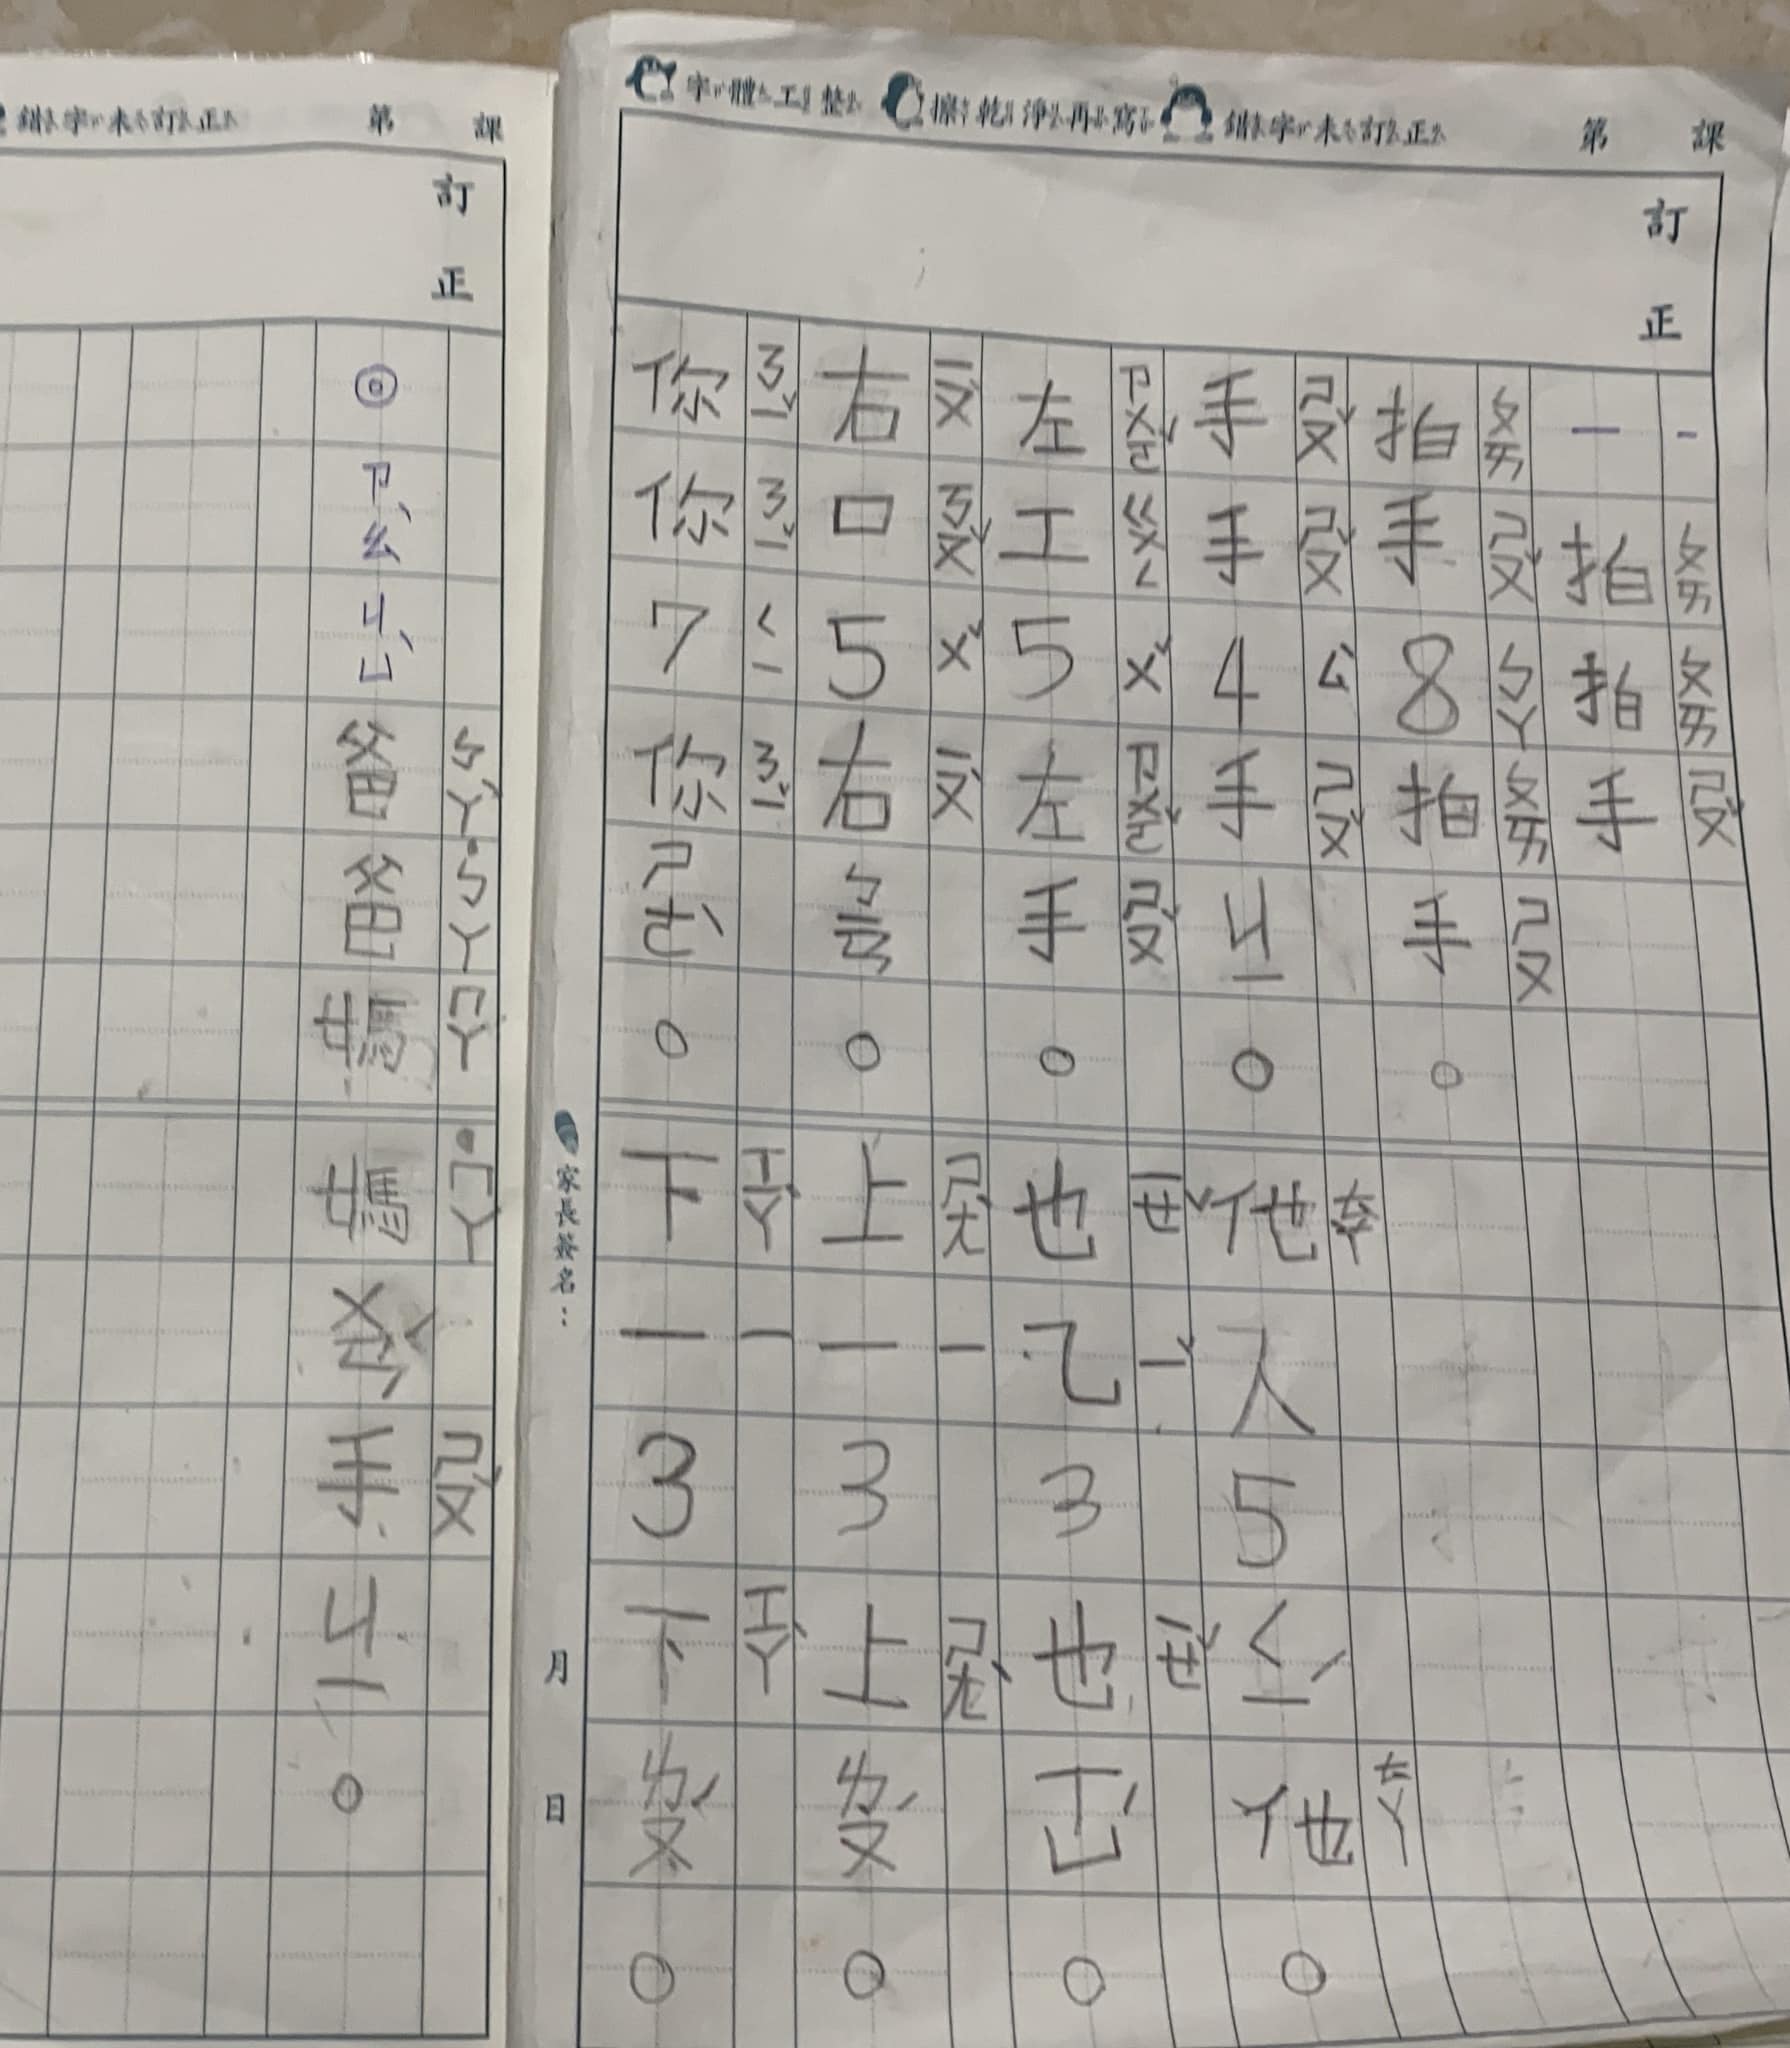 字體工整 擦乾淨再寫 錯字未訂正 第 課
訂正
一ㄧ拍ㄆㄞ拍ㄆㄞ手ㄕㄡˇ
拍ㄆㄞ手ㄕㄡˇ8ㄅㄚ拍ㄆㄞ手ㄕㄡ。
手ㄕㄡˇ手ㄕㄡˇ4ㄙˋ手ㄕㄡˇㄐㄧ。
他ㄊㄚ入5ㄑㄧˊ他ㄊㄚ。
左ㄗㄨㄛˇ工ㄍㄨㄥ5ㄨˇ左ㄗㄨㄛˇ手ㄕㄡˇ。
也ㄧㄝˇ乙ㄧˇ3也ㄧㄝˇㄒㄩˊ。
右ㄧㄡˋ口ㄎㄡˇ5ㄨˇ右ㄧㄡˋㄅㄧㄢ。
上ㄕㄤˋ一ㄧ3上ㄕㄤˋㄌㄡˊ。
你ㄋㄧˇ你ㄋㄧˇ7ㄑㄧ你ㄋㄧˇㄕㄜˋ。
下ㄒㄧㄚˋ一ㄧ3下ㄒㄧㄚˋㄌㄡˊ。
家長簽名：
月 日
錯字未訂正 第 課
訂正
◎ㄗˋㄠㄐˋㄩ爸ㄅㄚˋ爸˙ㄅㄚ媽ㄇㄚ媽˙ㄇㄚ手ㄕㄡˇㄐㄧ。